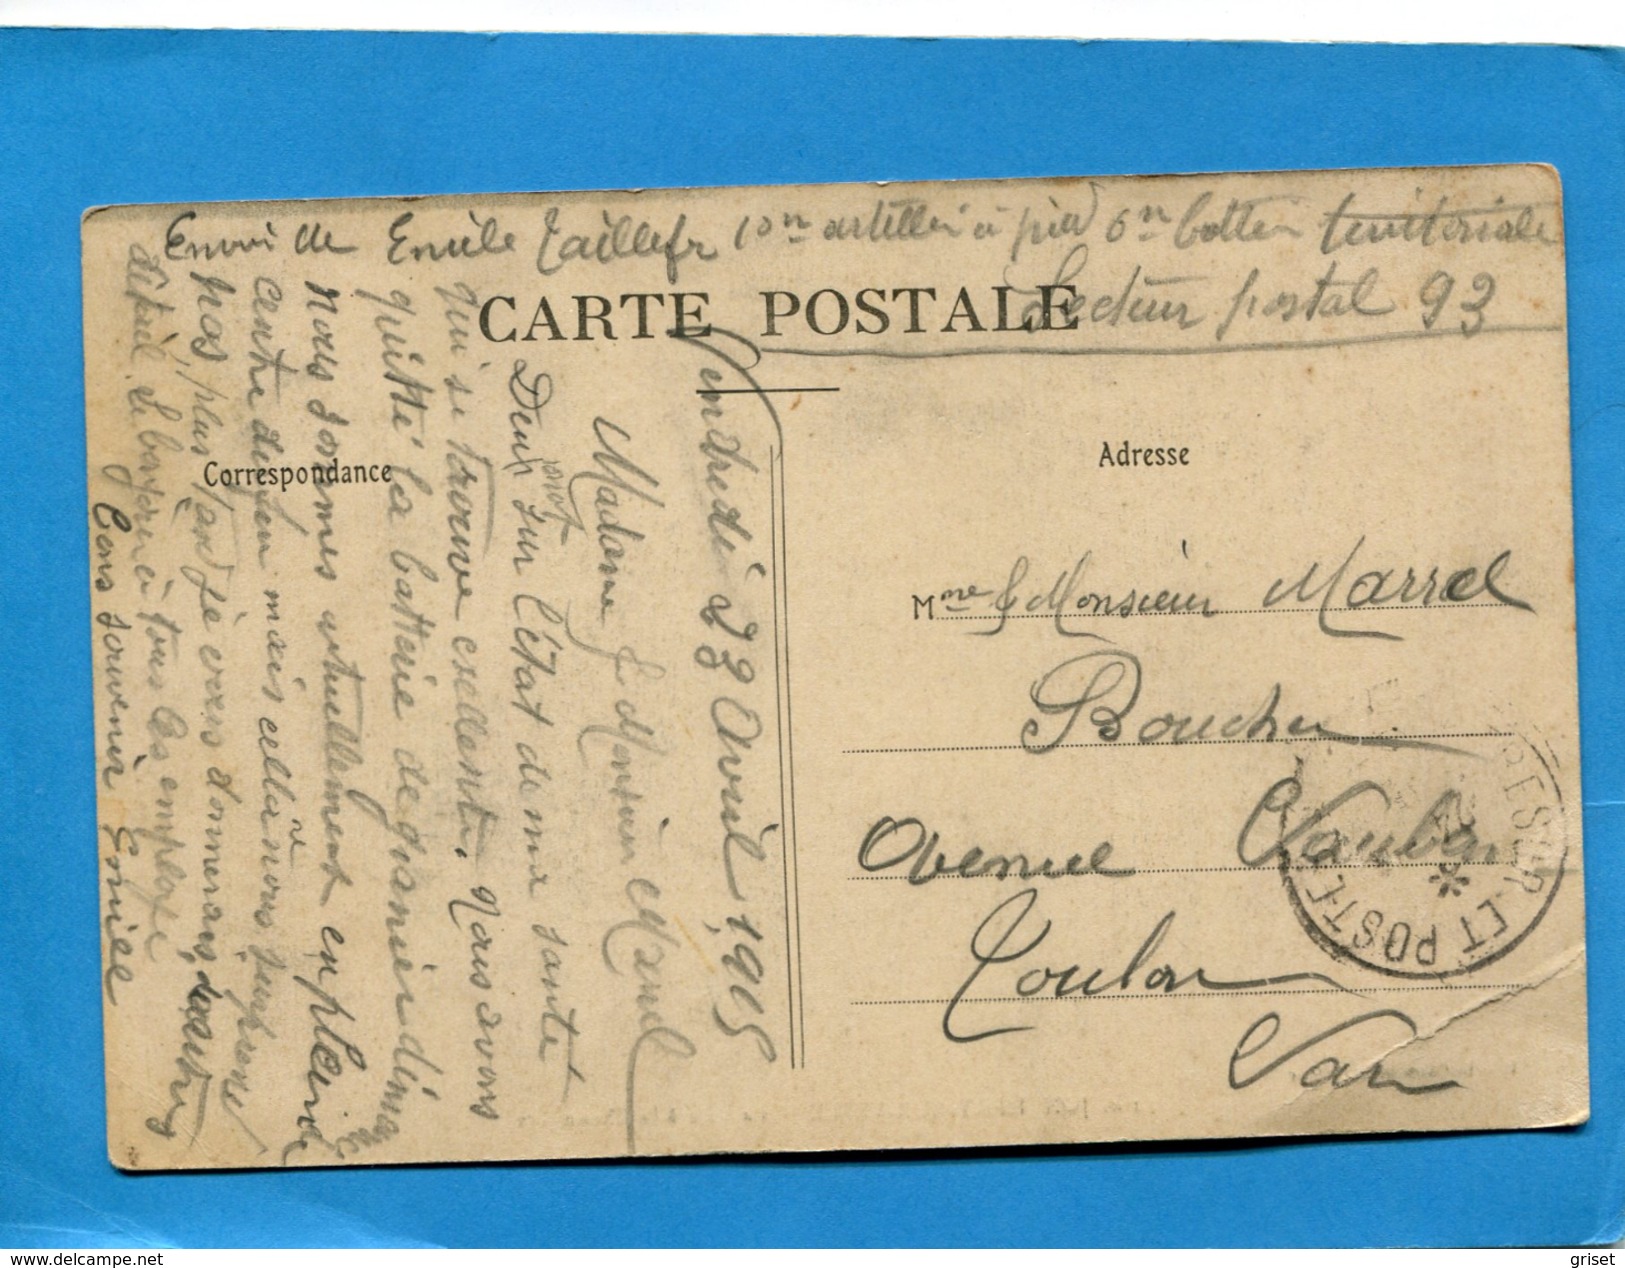 Envoi de Emile Taillefr 10me artilleri à pied 6me batteri territoriale
Secteur postal 93
CARTE POSTALE
Correspondance
Adresse
Vendredi 23 Avril 1915
Madame & Monsieur Marrel
Deux mot sur l'état de ma santé
qui se trouve exellente. Nous avons
quitté la batterie de dimanche
Nous sommes actuellement en pleine
centre du feu mais cella nous
Nos, plus tard je vous donnerais d'autres
détail. Le bonjour à tous les employé
Bons souvenir Emile
Mme & Monsieur Marrel
Boucher
Avenue Vauban
Toulon
Var
TRESOR ET POSTES
griset